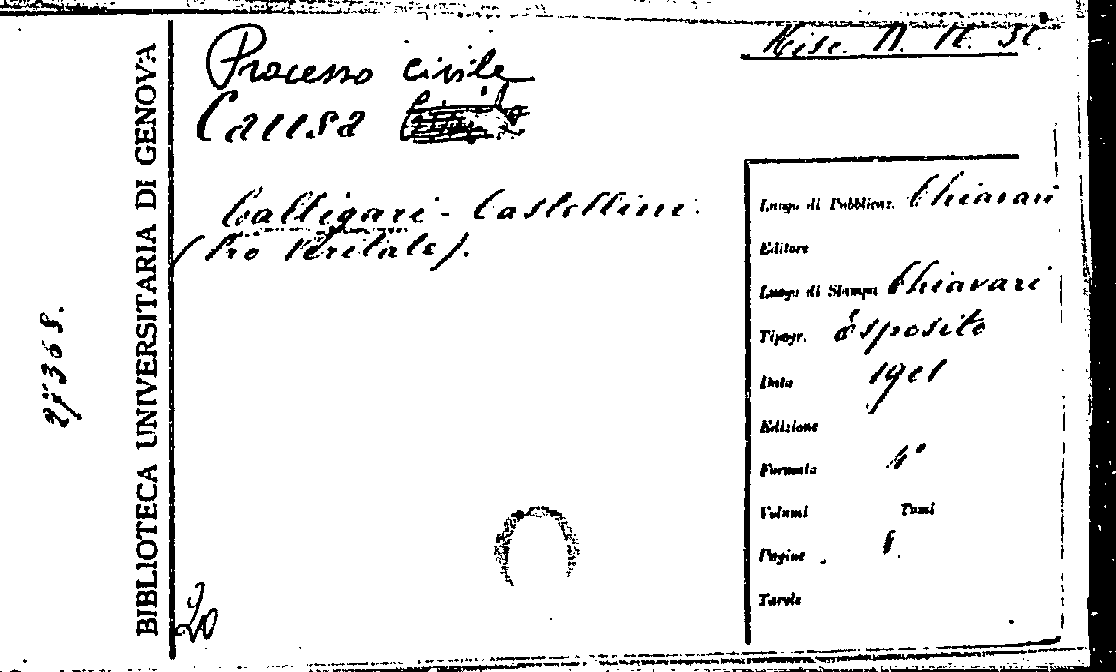 Misc. N. IX. 31.
Processo civile
Causa
Calligari - Castellini.
(Pro Veritate).
BIBLIOTECA UNIVERSITARIA DI GENOVA
20
Luogo di Pubblicaz. Chiavari
Editore
Luogo di Stampa Chiavari
Tipogr. Esposito
Data 1901
Edizione
Formato 4°
Volumi Tomi
Pagine
Tavole